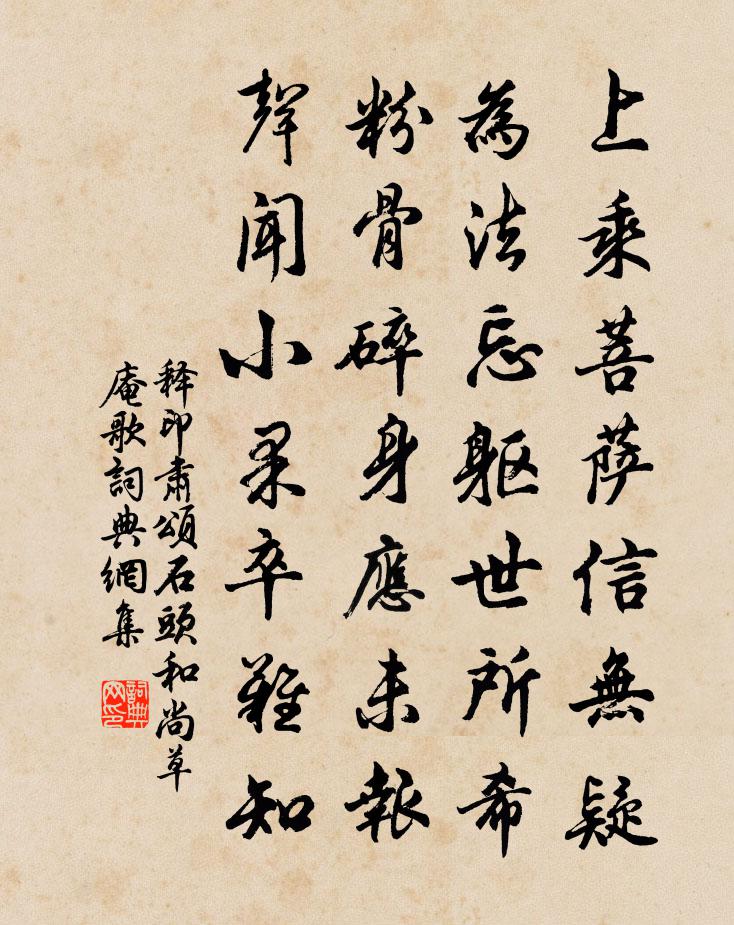 上乘菩薩信無疑
為法忘軀世所希
粉骨碎身應未報
聲聞小果卒難知
释印肅頌石頭和尚草
庵歌詞典網集
詞典网印